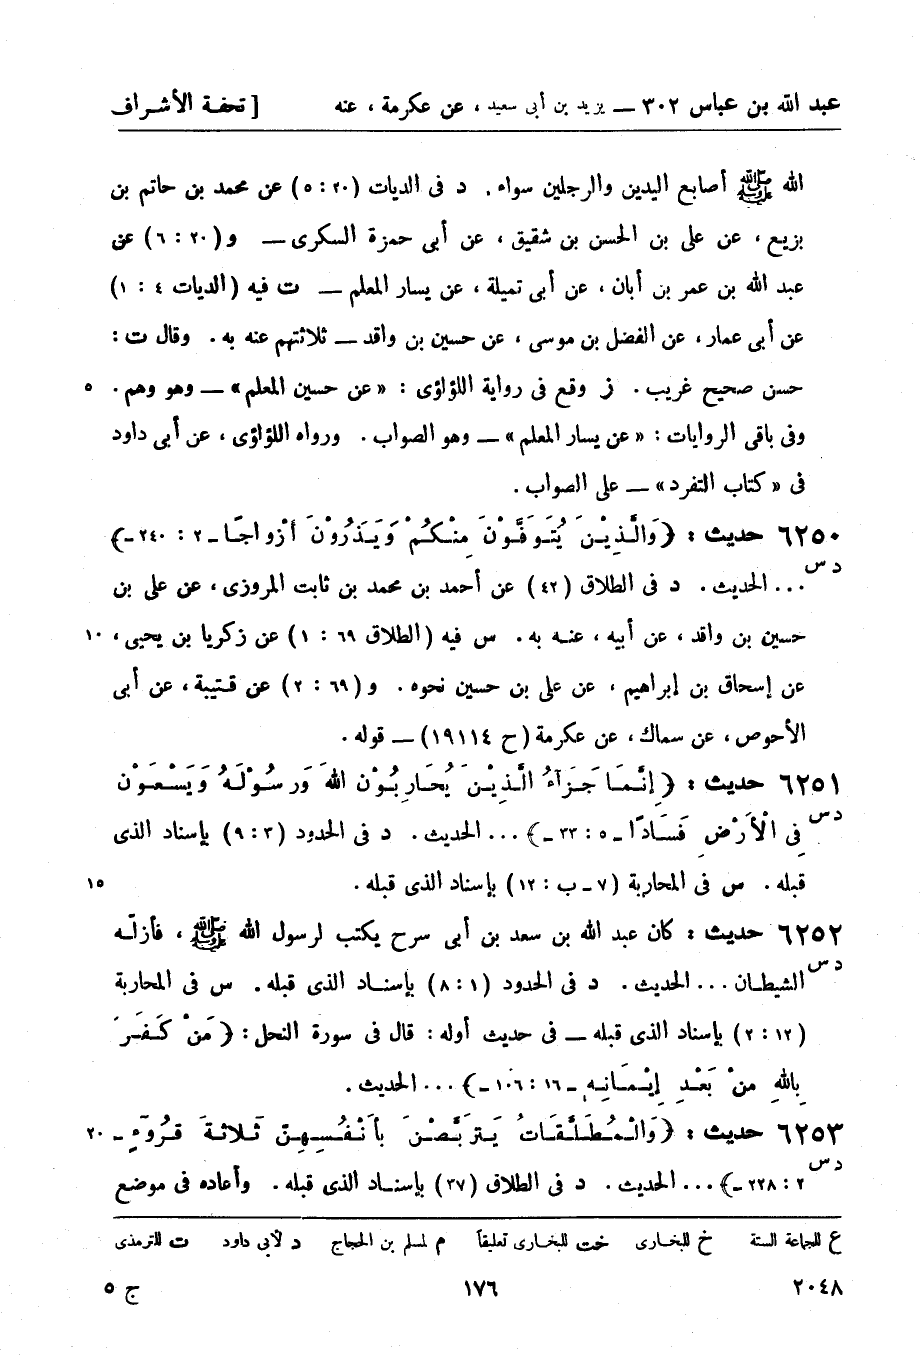 عبد الله بن عباس ٣٠٢ — يزيد بن أبى سعيد ، عن عكرمة ، عنه [ تحفة الأشراف
الله ﷺ أصابع اليدين والرجلين سواء . د فى الديات (٢٠ : ٥) عن محمد بن حاتم بن
بزيع ، عن على بن الحسن بن شقيق ، عن أبى حمزة السكرى — و(٢٠ : ٦) عن
عبد الله بن عمر بن أبان ، عن أبى تميلة ، عن يسار المعلم — ت فيه (الديات ٤ : ١)
عن أبى عمار ، عن الفضل بن موسى ، عن حسين بن واقد — ثلاثتهم عنه به . وقال ت :
حسن صحيح غريب . ز وقع فى رواية اللؤلؤى : «عن حسين المعلم» — وهو وهم . ٥
وفى باقى الروايات : «عن يسار المعلم» — وهو الصواب . ورواه اللؤلؤى ، عن أبى داود
فى «كتاب التفرد» — على الصواب .
٦٢٥٠ حديث : ﴿وَالَّذِيْنَ يُتَوَفَّوْنَ مِنْكُمْ وَيَذَرُوْنَ أَزْوَاجًا ـ ٢ : ٢٤٠ ـ﴾
د س ... الحديث . د فى الطلاق (٤٢) عن أحمد بن محمد بن ثابت المروزى ، عن على بن
حسين بن واقد ، عن أبيه ، عنه به . س فيه (الطلاق ٦٩ : ١) عن زكريا بن يحيى ، ١٠
عن إسحاق بن إبراهيم ، عن على بن حسين نحوه . و(٦٩ : ٢) عن قتيبة ، عن أبى
الأحوص ، عن سماك ، عن عكرمة (ح ١٩١١٤) — قوله .
٦٢٥١ حديث : ﴿إِنَّمَا جَزَآءُ الَّذِيْنَ يُحَارِبُوْنَ اللهَ وَرَسُوْلَهُ وَيَسْعَوْنَ
د س فِى الْأَرْضِ فَسَادًا ـ ٥ : ٣٣ ـ﴾ ... الحديث . د فى الحدود (٣ : ٩) بإسناد الذى
قبله . س فى المحاربة (٧ ـ ب : ١٢) بإسناد الذى قبله . ١٥
٦٢٥٢ حديث : كان عبد الله بن سعد بن أبى سرح يكتب لرسول الله ﷺ ، فأزلّه
د س الشيطان ... الحديث . د فى الحدود (١ : ٨) بإسناد الذى قبله . س فى المحاربة
(١٢ : ٢) بإسناد الذى قبله — فى حديث أوله : قال فى سورة النحل : ﴿مَنْ كَفَرَ
بِاللهِ مِنْ بَعْدِ إِيْمَانِهِ ـ ١٦ : ١٠٦ ـ﴾ ... الحديث .
٦٢٥٣ حديث : ﴿وَالْمُطَلَّقَاتُ يَتَرَبَّصْنَ بِأَنْفُسِهِنَّ ثَلَاثَةَ قُرُوْٓءٍ ـ ٢٠
د س ٢ : ٢٢٨ ـ﴾ ... الحديث . د فى الطلاق (٣٧) بإسناد الذى قبله . وأعاده فى موضع
ع للجماعة الستة خ للبخارى خت للبخارى تعليقاً م لمسلم بن الحجاج د لأبى داود ت للترمذى
٢٠٤٨ ١٧٦ ج ٥